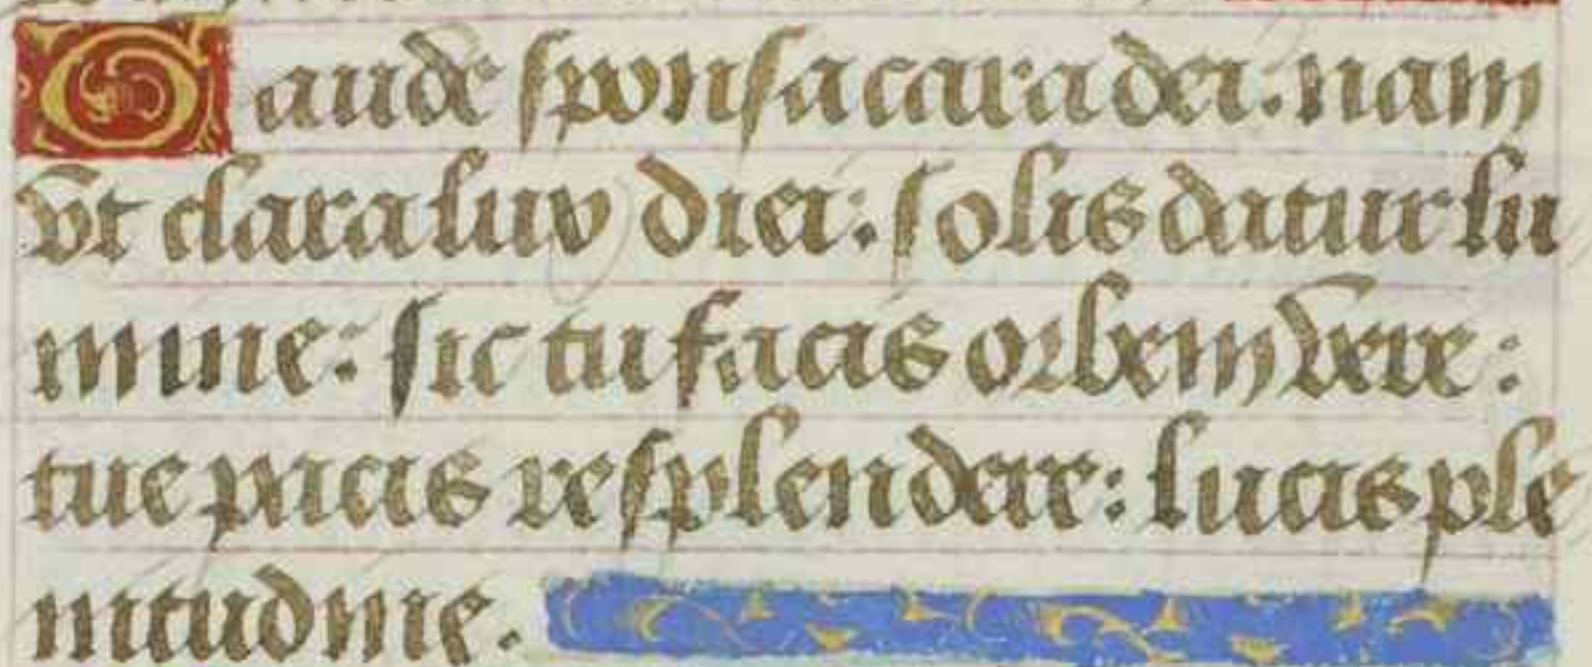 Gaude sponsa cara dei. nam
vt clara lux diei: solis datur lu
mine: sic tu facis orbem vere:
tue pacis resplendere: lucis ple
nitudine.